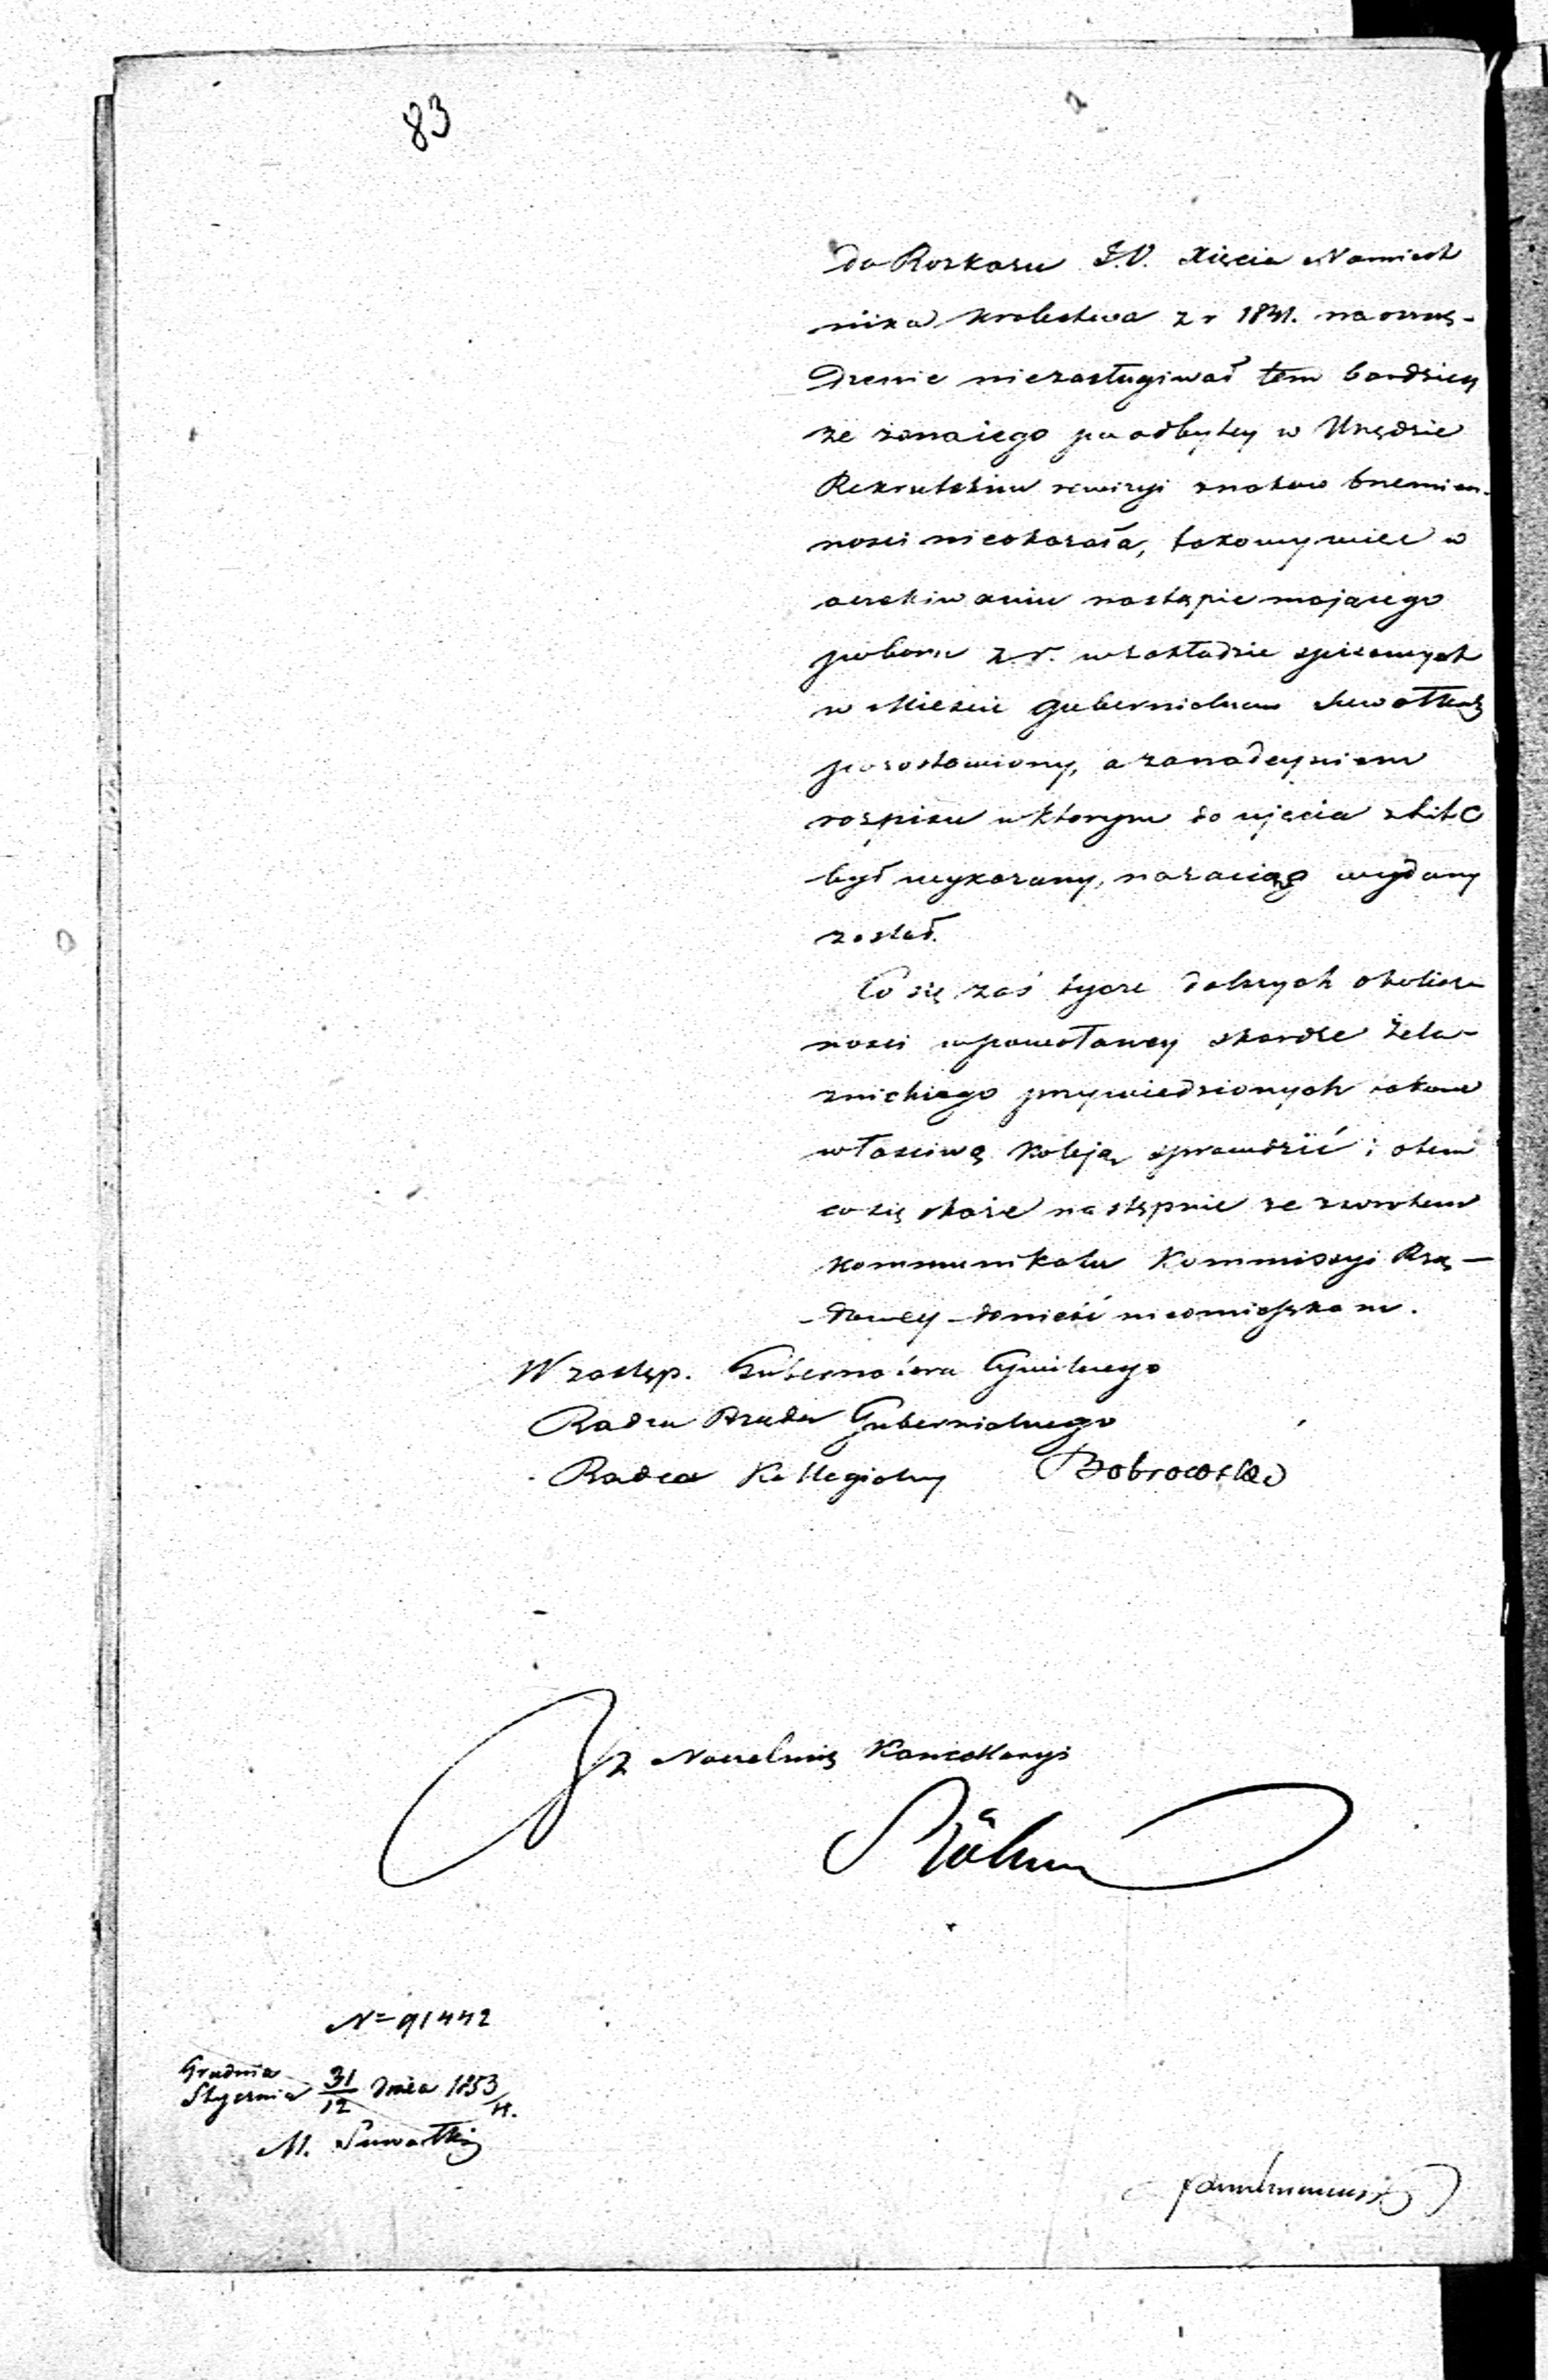 83
do Rozkazu J.O. Xięcia Namiest
nika Krolestwa z r 1841. na oszczę-
dzenie niezasługiwał tem bardziey
ze żona iego po odbytey w Urzędzie
Rekrutskim rewizyi znaków brzemien-
nosci nieokazała, takowy więc w
oczekiwaniu nastąpic maiącego
poboru z.r. w zakładzie spisowych
w Miescie Gubernialnem Suwałkach
pozostawiony, a zanadeyściem
rozpisu w którym do ujęcia z lit C
był wykazany, nazaciąg wydany
został.
Co się zaś tycze dalszych okolicz-
nosci w powołaney skardze Żela-
znickiego przywiedzionych takowe
właściwą koleją sprawdzić i otem
co się okaże następnie ze zwrotem
kommunikatu Kommissyi Rzą-
dowey donieść nieomieszkam.
W zastęp. Gubernatora Cywilnego
Radca Rządu Gubernialnego
Radca Kollegialny Bobrowski
Naczelnik Kancellaryi
Böhm
N= 91442
Grudnia
Stycznia 31/12 dnia 1853/4.
M. Suwałki